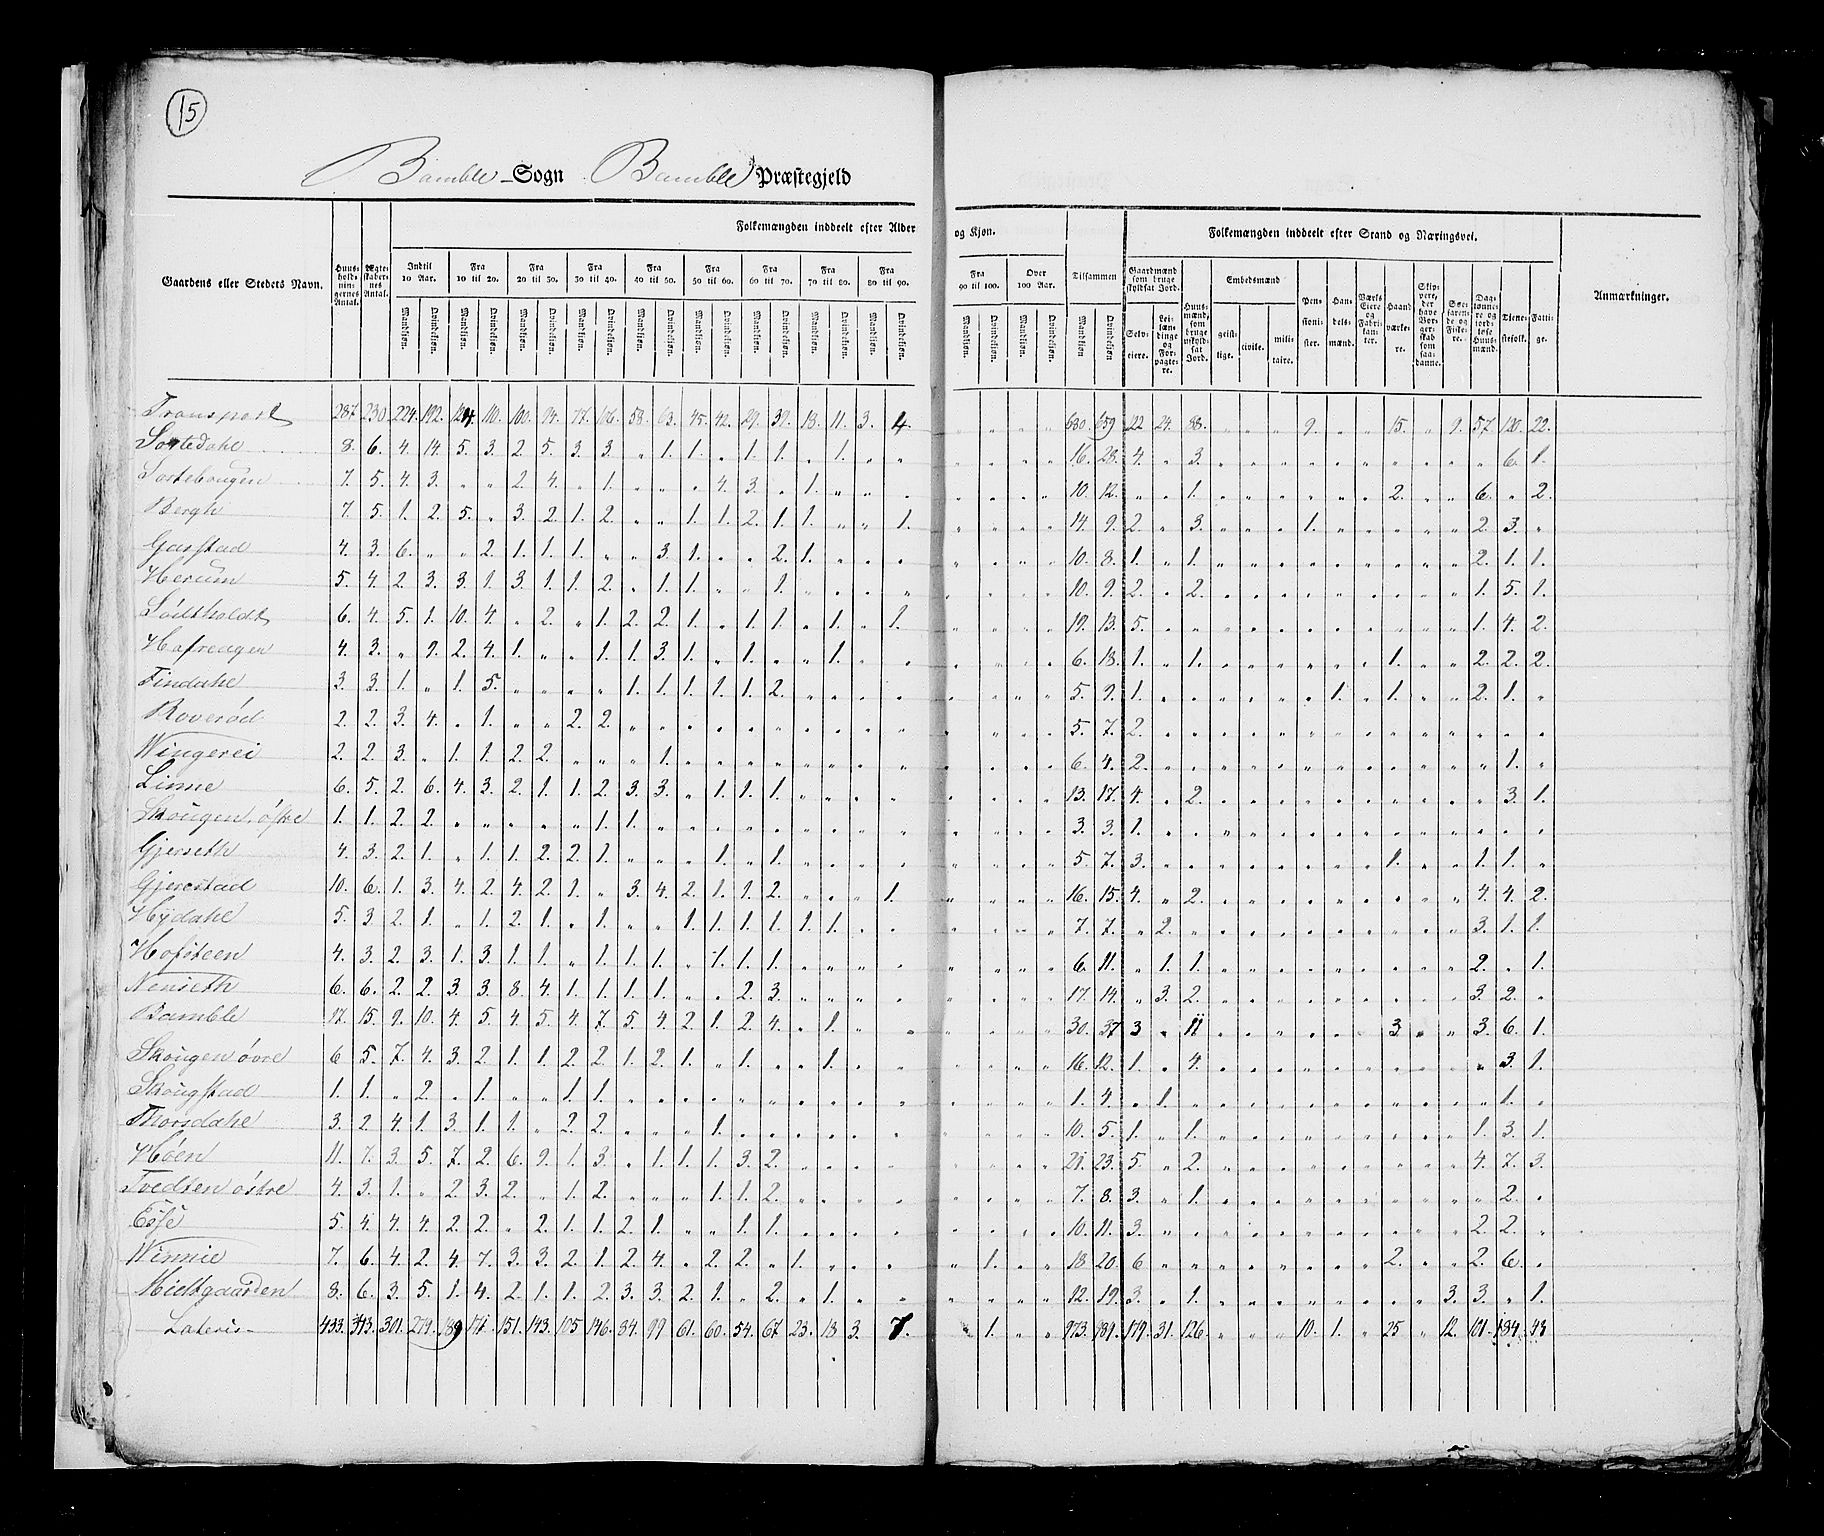 15
Bamble Sogn Bamble Præstegjeld
Gaardens eller Stedets Navn.
Huus-holdnin-gernes Antal.
Ægte-skaber-nes Antal.
Folkemængden inddeelt efter Alder og Kjøn.
Indtil 10 Aar. Fra 10 til 20. Fra 20 til 30. Fra 30 til 40. Fra 40 til 50. Fra 50 til 60. Fra 60 til 70. Fra 70 til 80. Fra 80 til 90. Fra 90 til 100. Over 100 Aar. Tilsammen
Mandkjøn. Qvindekjøn.
Folkemængden inddeelt efter Stand og Næringsvei.
Gaardmænd som bruge skyldsat Jord.
Selv-eiere. Lei-lændinge og For-pagte-re.
Huus-mænd, som bruge uskyld-sat Jord.
Embedsmænd
geist-lige. civile. mili-taire.
Pen-sioni-ster. Han-dels-mænd. Værks Eiere og Fabrikan-ter. Haand værke-re. Skip-pere, der have Bor-ger-skab som saa-danne. Søe-farende og Fiske-re. Dag-lønne-re og jord-løse Huus-mænd. Tjene-stefolk. Fatti-ge.
Anmærkninger.
Transport 287. 230 224. 192. 124. 110. 100. 94. 77. 106. 58. 63. 45. 42. 29. 39. 18. 11. 3. 4. " " " " 680. 659 122 24. 88. " " " 9. " " 15. " 9. 57. 120. 22.
Sortedahl 8. 6. 4. 14. 5. 3. 2 5. 3. 3. " 1. 1. " 1. 1. " 1. " " " " " " 16. 28. 4. " 3. " " " " " " " " " " 6. 1.
Sortebougen 7. 5. 4. 3. " " 2. 4. " 1. " " " 4. 3. " 1. " " " " " " " 10. 12. " " 1. " " " " " " 2. " " 6. " 2.
Bergh 7. 5. 1. 2. 5. " 3. 2. 1. 2. " " 1. 1. 2. 1. 1. " " 1. " " " " 14. 9. 2. " 3. " " " 1. " " " " " 2. 3. "
Garstad 4. 3. 6. " " 2. 1. 1. 1. " " 3. 1. " " 2. 1. " " " " " " " 10. 8. 1. " 1. " " " " " " " " " 2. 1. 1.
Herum 5. 4. 2. 3. 3. 1. 3. 1. 1. 2. " 1. 1. " " 1. " " " " " " " " 10. 9. 2. " 2. " " " " " " " " " 1. 5. 1.
Södtholdt 6. 4. 5. 1. 10. 4. " 2. " 1. 2. 2. 1. " 1. 1. " 1. " 1. " " " " 19. 13. 5. " " " " " " " " " " " 1. 4. 2.
Hafrenger 4. 3. " 9. 2. 4. 1. " " 1. 1. 3. 1. " 1. " " 1. " " " " " " 6. 18. 1. " 1. " " " " " " 1. " " 2. 2. 2.
Findahl 3. 3. 1. " 1. 5. " " " " 1. 1. 1. 1. 1. 2. " " " " " " " " 5. 9. 1. " " " " " " 1. " 1. " " 2. 1. "
Roveröd 2. 2. 3. 4. " 1. " " 2. 2. " " " " " " " " " " " " " " 5. 7. 2. " " " " " " " " " " " " " "
Wingerei 2. 2. 3. " 1. 1. 2. 2. " " " 1. " " " " " " " " " " " " 6. 4. 2. " " " " " " " " " " " " 1. "
Linne 6. 5. 2. 6. 4. 3. 2. 1. 1. 2. 3. 3. " 1. 1. 1. " " " " " " " " 13. 17. 4. " 2. " " " " " " " " " " 3. 1.
Skougen, östre 1. 1. 2. 2. " " " " " 1. 1. " " " " " " " " " " " " " 3. 3. 1. " " " " " " " " " " " " " "
Gjerseth 4. 3. 2. 1. " 1. 1. 2. 2. 1. " " " 1. " 1. " " " " " " " " 5. 7. 3. " " " " " " " " 1. " " 1. 1. "
Gjerestad 10. 6. 1. 3. 4. 2. 4. 2. 1. " 3. 4. 2. 1. 1. 2. " " " 1. " " " " 16. 15. 4. " 2. " " " " " " " " " 4. 4. 2.
Hydahl 5. 3 2. 1. " 1. 2. 1. " 1. " " 1. 1. 1. 1. 1. 1. " " " " " " 7. 7. " 2. " " " " " " " " " " 3. 1. 1.
Hafsteen 4. 3. 2. 3. 1. 3. 1. 1. " 1. 1. 1. " 1. 1. 1. " " " " " " " " 6. 11. " 1. 1. " " " " " " " " " 2. " 1.
Nenseth 6. 6. 2. 2. 3. 3. 8. 4. 1. 1. 1. 1. " " 2. 3. " " " " " " " " 17. 14. " 3. 2. " " " " " " " " " 3. 2. "
Bamble 17. 15. 9. 10. 4. 5. 4. 5. 4. 7. 5. 4. 2. 1. 2. 4. " 1. " " " " " " 30. 37 3. " 11 " " " " " " 3. " " 3. 6. 1.
Skougen övre 6 5. 7. 4. 3. 2. 1. 1. 2. 2. 1. 2. 1. " 1. " " 1. " " " " " " 16. 12. 1. " 4. " " " " " " " " " " 3. 1.
Skougstad 1. 1. " 2. " 1. " " 1. 1. " " " " " " " " " " " " " " 1. 4. " 1. " " " " " " " " " " " 1. "
Thorsdahl 3. 2. 4. 1. 3. 1. 1. " 2. 2. " " " 1. " " " " " " " " " " 10. 5. 1. " 1. " " " " " " " " " 1. 3. 1.
Höen 11. 7. 3. 5. 7. 2. 6. 9. 1. 3. " 1. 1. 1. 3. 2. " " " " " " " " 21. 23. 5. " 2. " " " " " " " " " 4. 7. 3.
Tvedten östre 4. 3. 1. " 2. 3. 2. " 1. 2. " " " 1. 1. 2. " " " " " " " " 7. 8. 3. " 1. " " " " " " " " " " 2. "
5. 4. 4. 4. 2. 2. " 2. 1. 1. 2. 1. " " 1. 1. " " " " " " " " 10. 11. 3. " " " " " " " " " " " 2. 2. "
Winnie 7. 6. 4. 2. 4. 7. 3. 3. 2. 1. 2. 4. " 2. 2. " 1. " " " " 1. " " 18 20. 6 " " " " " " " " 2. " " 2. 6. "
Midtgaarden 8. 6. 3. 5. 1. 4. 2. 1. 1. 2. 3. 3. 2. 1. " 2. " 1. " " " " " " 12. 19. 3. " 1. " " " " " " " " 3. 3. " 1.
Lateris 433. 343. 301. 279. 189 171. 151. 143. 105. 146. 84. 99. 61. 60. 54. 67. 23. 18. 3. 7. " 1. " " 973. 989. 179. 31. 126. " " " 10. 1. " 25 " 12. 101. 184. 43